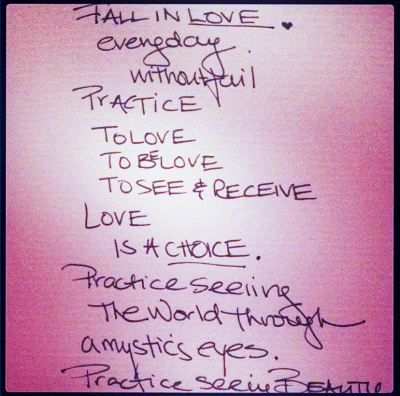 FALL IN LOVE
everyday
without fail
PRACTICE
TO LOVE
TO BE LOVE
TO SEE & RECEIVE
LOVE
IS A CHOICE.
Practice seeiing
The World Through
a mystic's eyes.
Practice seein BEAUTY